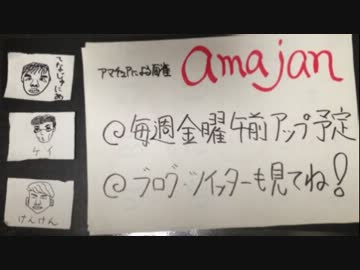 てなじゅにあ
ケイ
けんけん
アマチュアによる麻雀
amajan
@毎週金曜午前アップ予定
@ブログ・ツイッターも見てね!